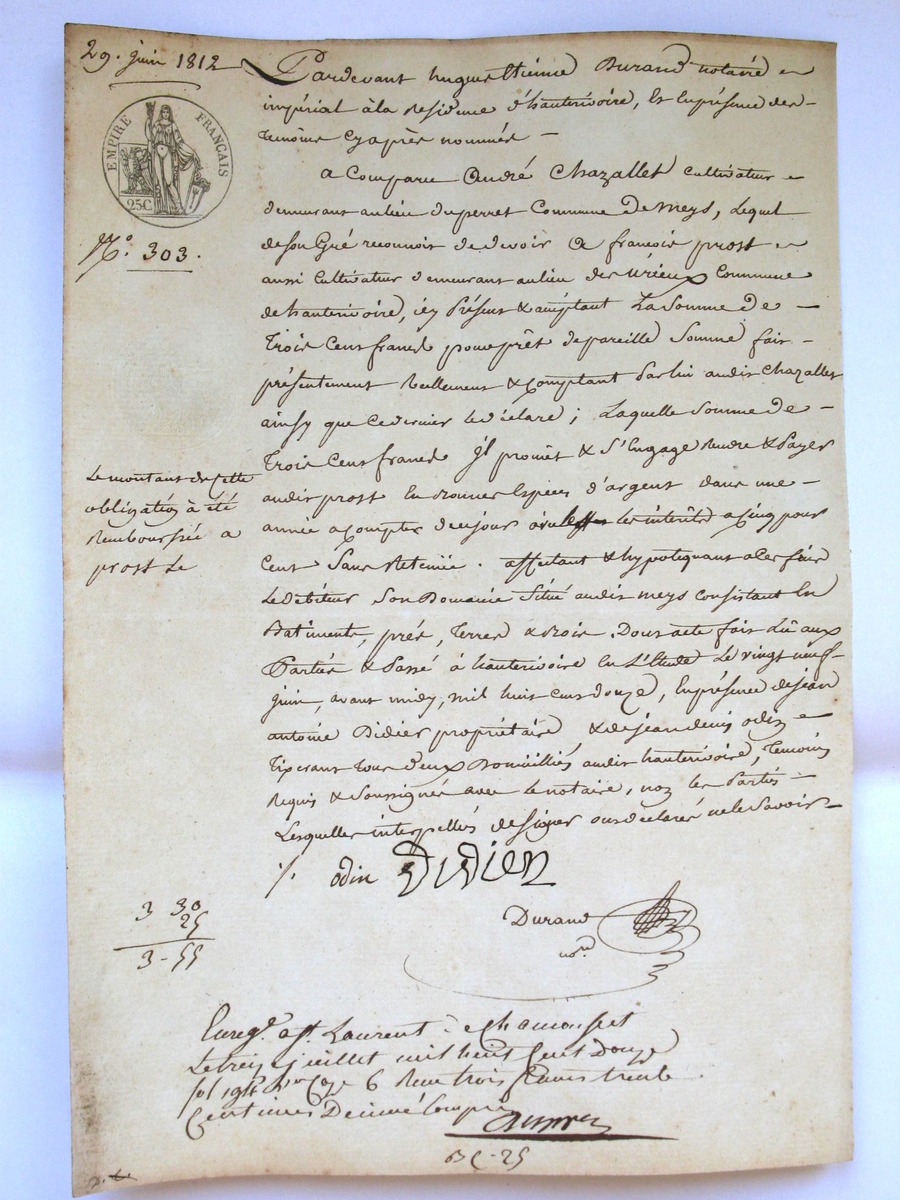 29. juin 1812
EMPIRE FRANÇAIS
25C
N.° 303.
Le montant de cette
obligation à été
Remboursée a
prost Le
Pardevant hugues Etienne Durand notaire
impérial à la Residence d'hauterivoire, Et En présence des
temoins Cyaprès nommés
a Comparu André Chazallet Cultivateur
demeurant au lieu du perret Commune de meys, Lequel
de son Gré reconnoit de devoir a françois prost
aussi Cultivateur demeurant au lieu des Commune
de hauterivoire, icy Présent & acceptant La Somme de
Trois Cens francs pour prêt de pareille Somme fait
présentement Reellement & Comptant Par lui audit Chazallet
ainsy que Ce dernier le déclare ; Laquelle Somme de
Trois Cens francs Il promet & S'Engage Rendre & Payer
audit prost En bonnes Espèces d'argent dans une
année a Compter de ce jour les intérêts a Cinq pour
Cent Sans Retenue . affectant & hypotequant a ces fins
Le Débiteur Son Domaine Situé audit meys Consistant En
Batiments, prés, Terres & Bois. Dont acte fait Lû aux
Parties & Passé à hauterivoire En L'Etude Le vingt neuf
juin, avant midy, mil huit cens douze, En présence de jean
antoine Didier propriétaire & de jean denis odin
Tixerant tous deux Domiciliés audit hauterivoire, Temoins
Requis & Soussignés avec le notaire, non les Parties
Lesquelles interpellés de signer ont déclaré ne le Savoir
odin Didier
Durand
no.re
3 30
25
3-55
Enreg.é a S.t Laurent de Chamousset
Le treize juillet mil huit Cent Douze
fol 6 Reçu trois francs trente
Centimes Decime Compris
25